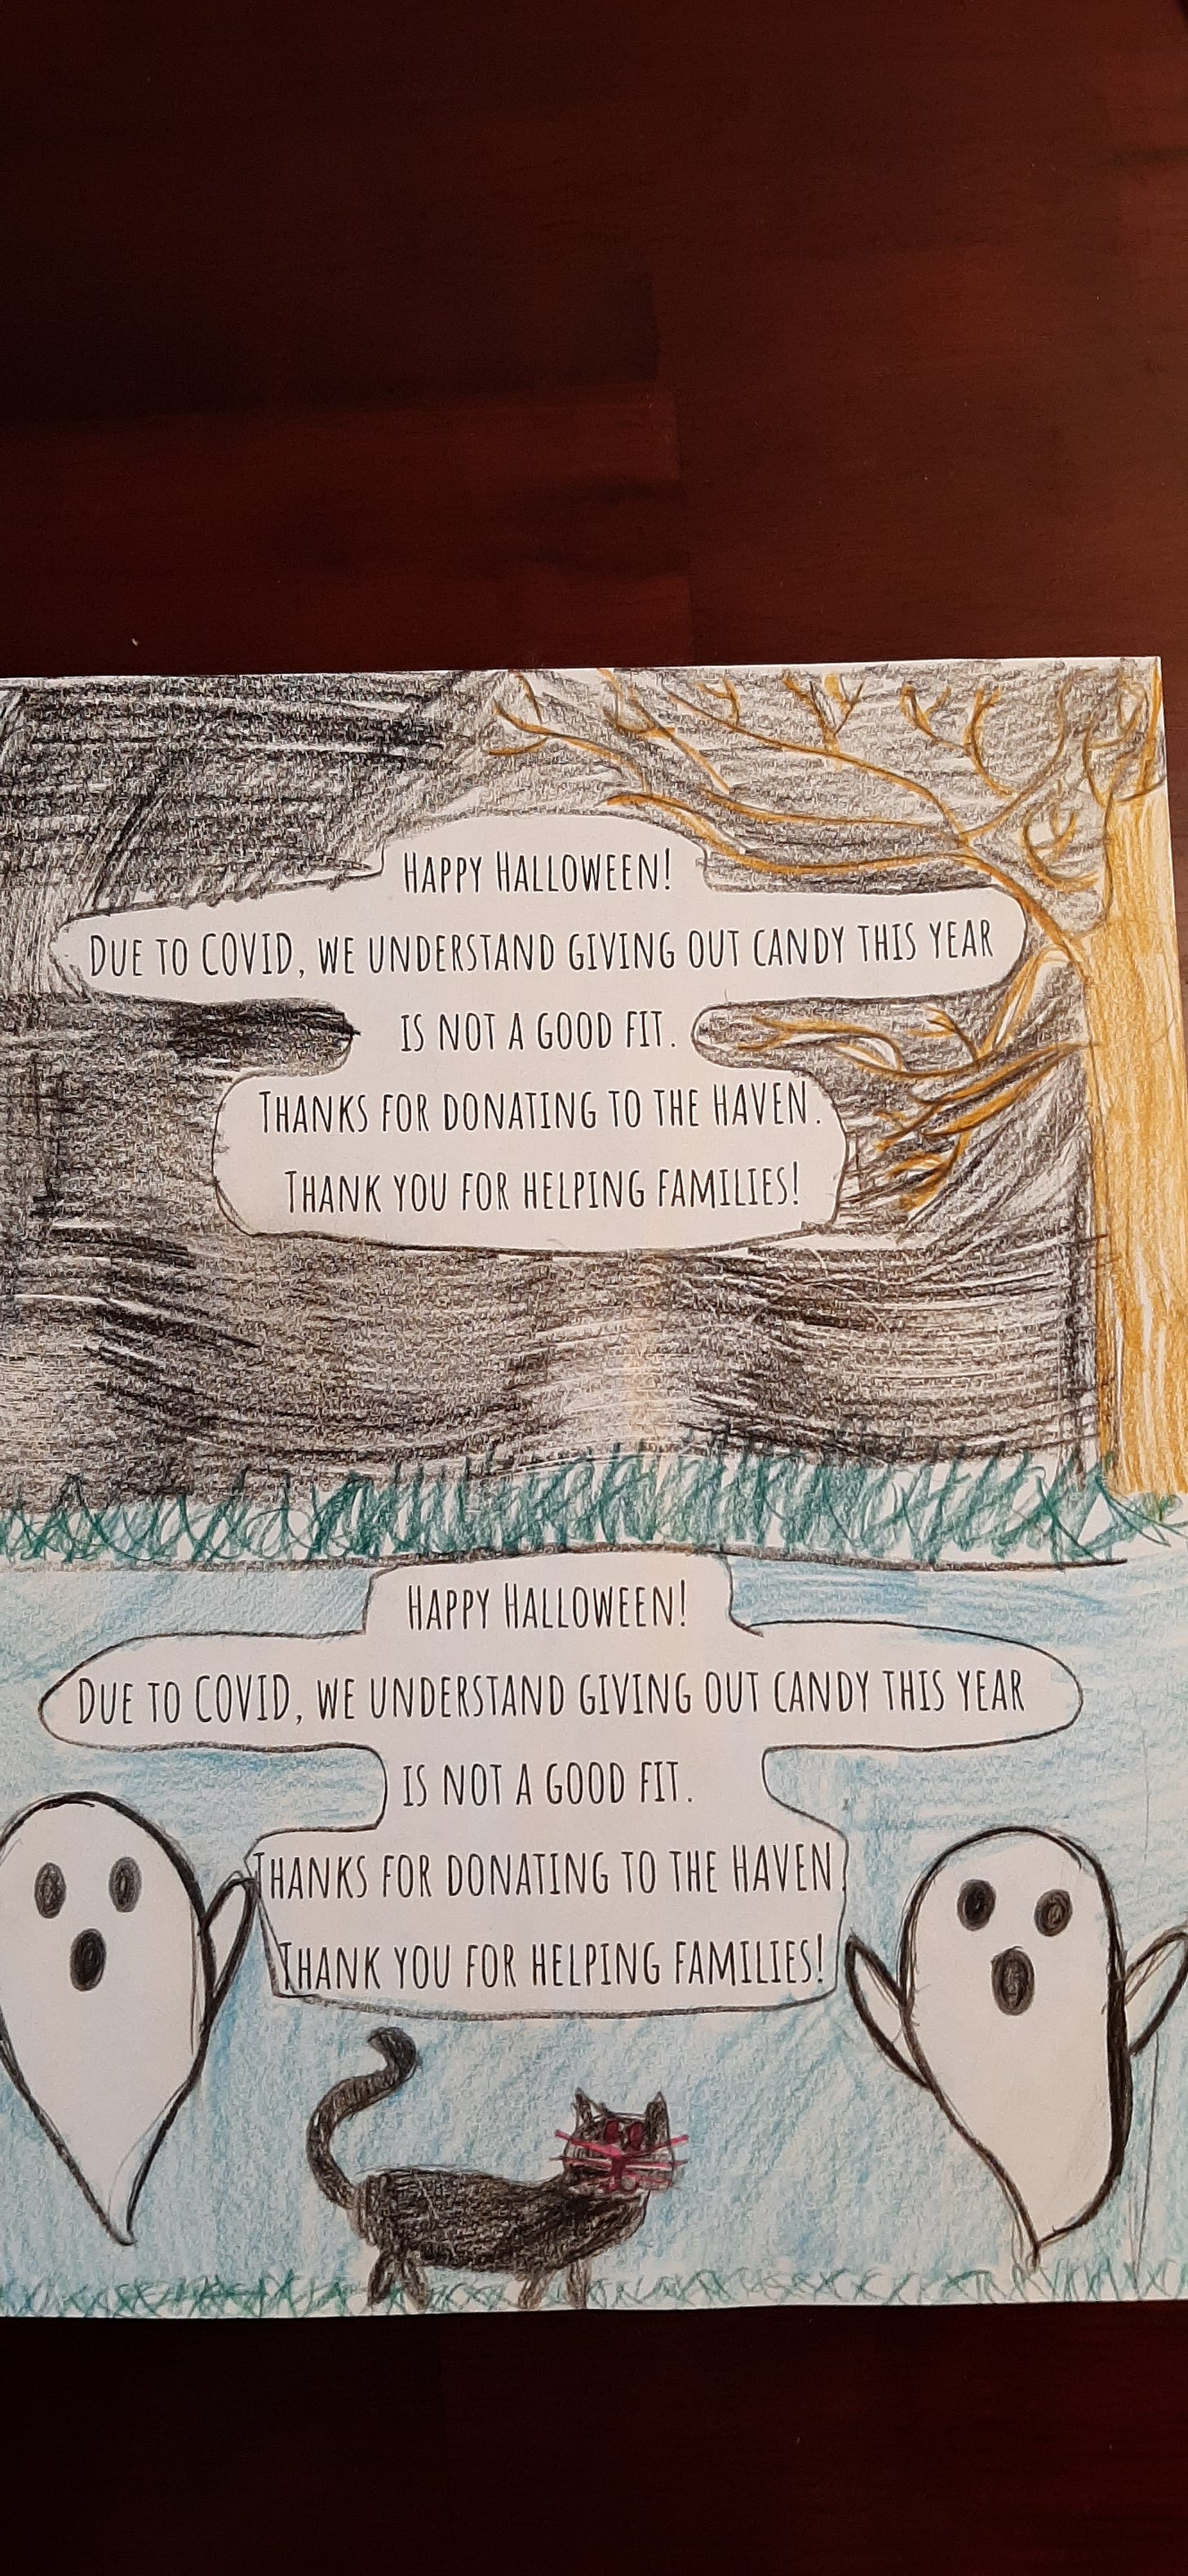 Happy Halloween!
Due to COVID, we understand giving out candy this year
is not a good fit.
Thanks for donating to the HAVEN.
Thank you for helping families!
Happy Halloween!
Due to COVID, we understand giving out candy this year
is not a good fit.
Thanks for donating to the HAVEN.
Thank you for helping families!